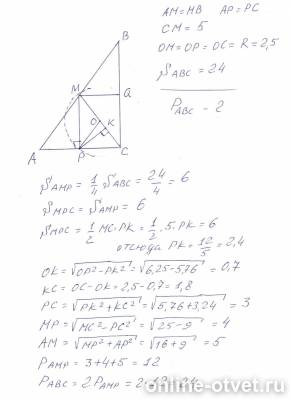 AM=MB AP=PC
CM=5
OM=OP=OC=R=2,5
S_ABC=24
P_ABC-?
B
M
Q
O
K
A
P
C
S_AMP=1/4 S_ABC=24/4=6
S_MPC=S_AMP=6
S_MPC=1/2 MC·PK=1/2·5·PK=6
отсюда PK=12/5=2,4
OK=√OP²-PK²=√6,25-5,76=0,7
KC=OC-OK=2,5-0,7=1,8
PC=√PK²+KC²=√5,76+3,24=3
MP=√MC²-PC²=√25-9=4
AM=√MP²+AP²=√16+9=5
P_AMP=3+4+5=12
P_ABC=2P_AMP=2·12=24
online-otvet.ru